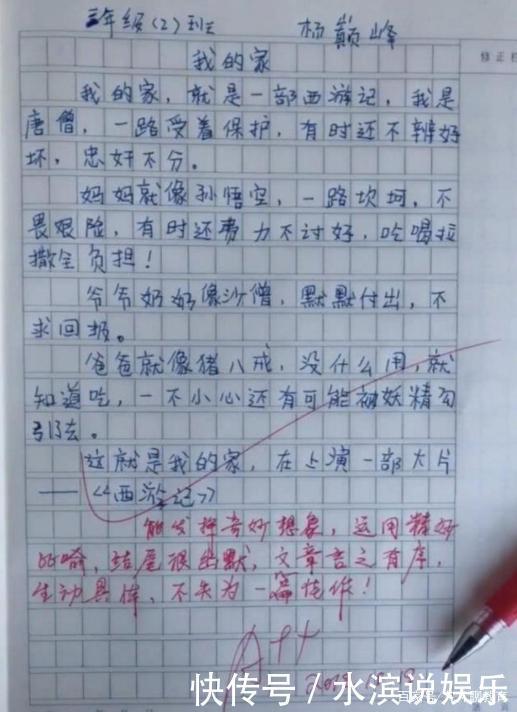 三年级(2)班 杨巅峰
修正栏
我的家
我的家，就是一部西游记，我是
唐僧，一路受着保护，有时还不辨好
坏，忠奸不分。
妈妈就像孙悟空，一路坎坷，不
畏艰险，有时还费力不讨好，吃喝拉
撒全负担！
爷爷奶奶像沙僧，默默付出，不
求回报。
爸爸就像猪八戒，没什么用，就
知道吃，一不小心还有可能被妖精勾
引去。
这就是我的家，在上演一部大片
——《西游记》
能发挥奇妙想象，运用精妙
比喻，结尾很幽默，文章言之有序，
生动具体，不失为一篇佳作！
A++
快传号/水滨说娱乐